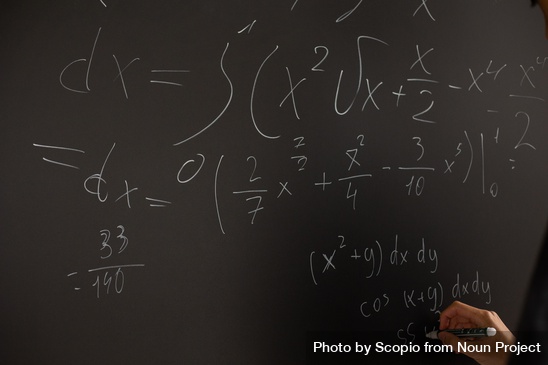 dx = ∫₀¹ (x² √x + x/2 - x⁴ - x⁴/2
= dx = (2/7 x^(7/2) + x²/4 - 3/10 x⁵)|₀¹ =
= 33/140
(x² + y) dx dy
cos (x+y) dx dy
Photo by Scopio from Noun Project